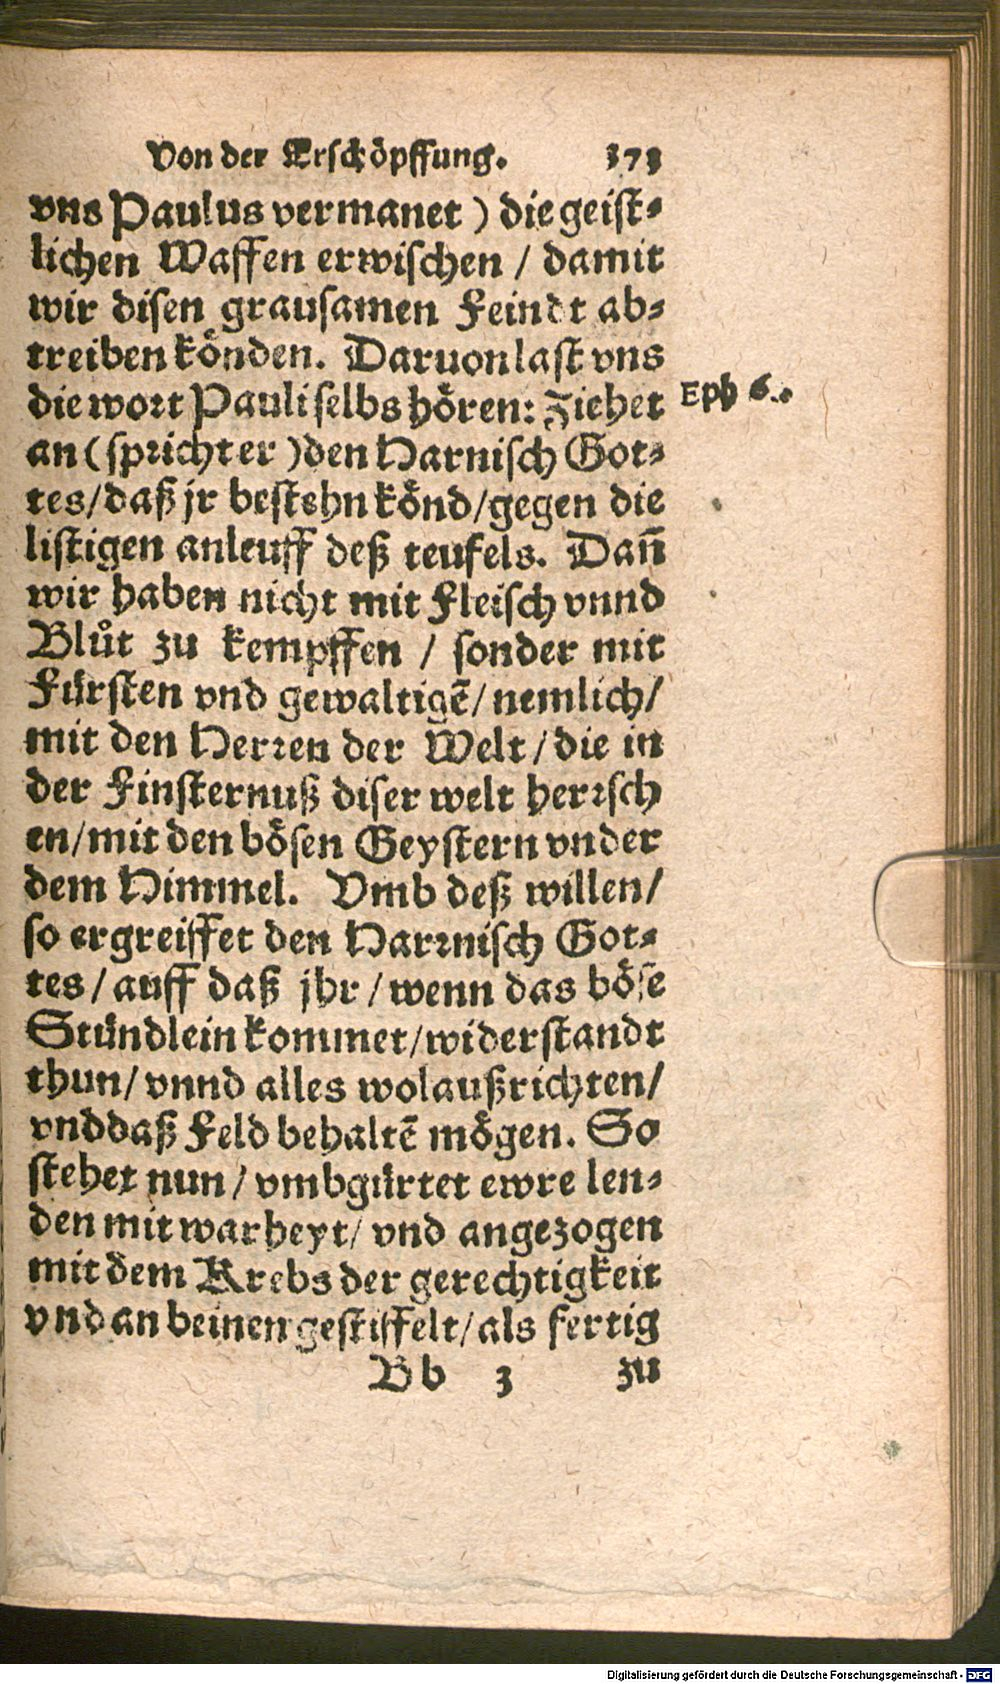 Von der Erschöpffung. 373
vns Paulus vermanet) die geist⸗
lichen Waffen erwischen / damit
wir disen grausamen Feindt ab⸗
treiben könden. Daruon last vns
die wort Pauli selbs hören: Ziehet
Eph 6.
an (spricht er) den Harnisch Got⸗
tes / daß jr bestehn könd / gegen die
listigen anleuff deß teufels. Dañ
wir haben nicht mit Fleisch vnnd
Blůt zu kempffen / sonder mit
Fürsten vnd gewaltigẽ / nemlich /
mit den Herren der Welt / die in
der Finsternuß diser welt herrsch
en / mit den bösen Geystern vnder
dem Himmel. Vmb deß willen /
so ergreiffet den Harnisch Got⸗
tes / auff daß jhr / wenn das böse
Stündlein kommet / widerstandt
thun / vnnd alles wolaußrichten /
vnd daß Feld behaltẽ mögen. So
stehet nun / vmbgürtet ewre len⸗
den mit warheyt / vnd angezogen
mit dem Krebs der gerechtigkeit
vnd an beinen gestiffelt / als fertig
Bb 3 zu
Digitalisierung gefördert durch die Deutsche Forschungsgemeinschaft - DFG